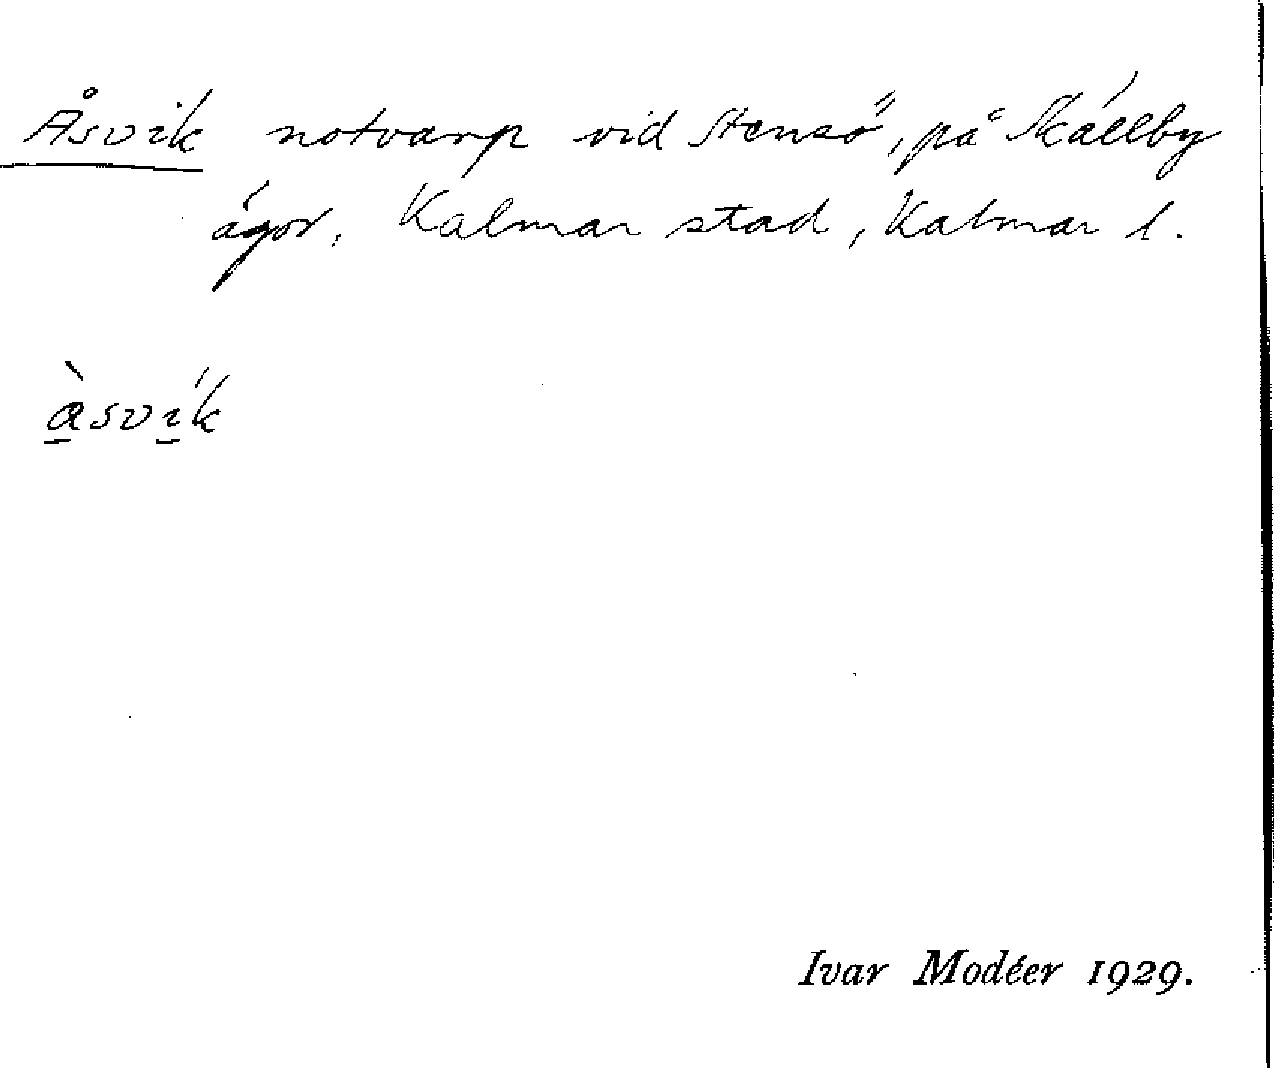 Åsvik notvarp vid Stensö, på Skällby
ägor, Kalmar stad, Kalmar l.
àsvik
Ivar Modéer 1929.